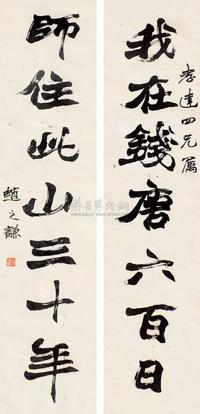 孝達四兄屬
我在錢唐六百日
師住此山三十年
趙之謙